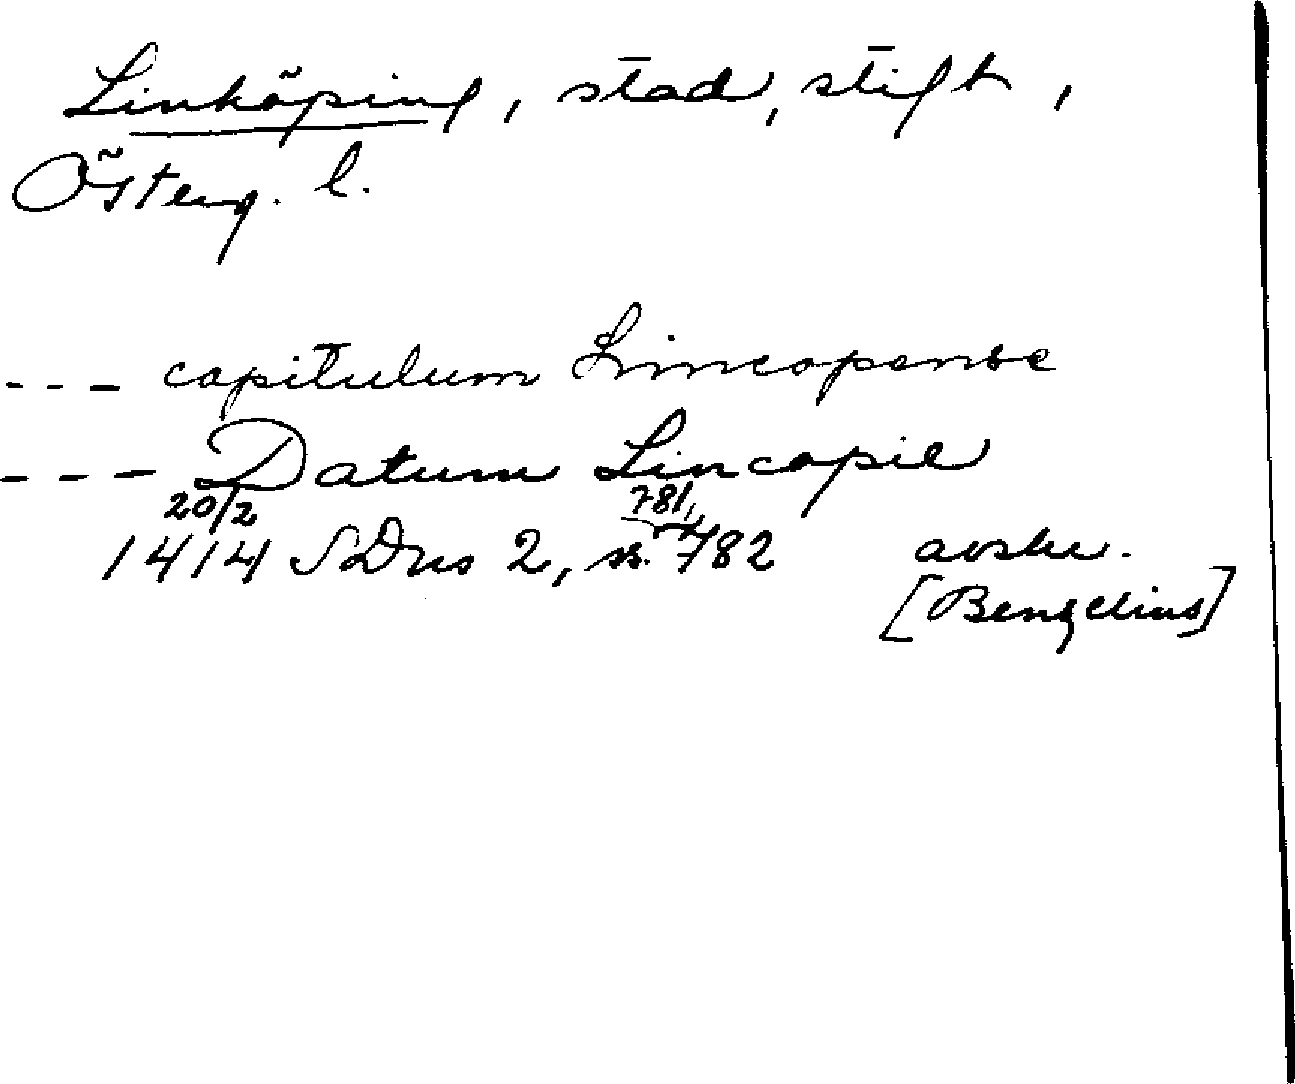 Linköping, stad, stift,
Österg. l.
--- capitulum Lincopense
--- Datum Lincopie
20/2 781,
1414 SDns 2, s. 782 avskr.
[Benzelius]